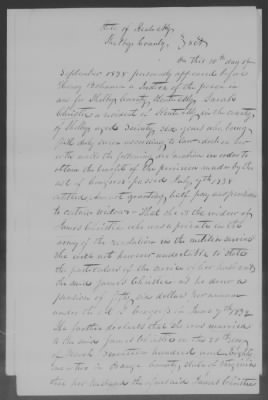 State of Kentucky
Shelby County, Sct
On this 10th day of
September 1838 personally appeared before
Henry Bohannon a Justice of the peace in
and for Shelby County, Kentucky Sarah
Christie a resident of Kentucky in the county
of Shelby aged Seventy six years who being
first duly sworn according to law doth on her
oath make the following declaration in order to
obtain the benefit of the provision made by the
act of Congress passed July 7th 1838
entitled An act granting half pay and pensions
to certain widows. That she is the widow of
James Christie who was a private in the
army of the revolution in the militia service
she was not previous to state
the particulars of the service of her husband
the said James Christie as he drew a
pension of fifty six dollars per annum
under the act of Congress of June 7th 1832
She further declares that she was married
to the said James Christie on the 20th day
of March Seventeen hundred and eighty
in Orange County, State of Virginia
that her husband the aforesaid James Christie